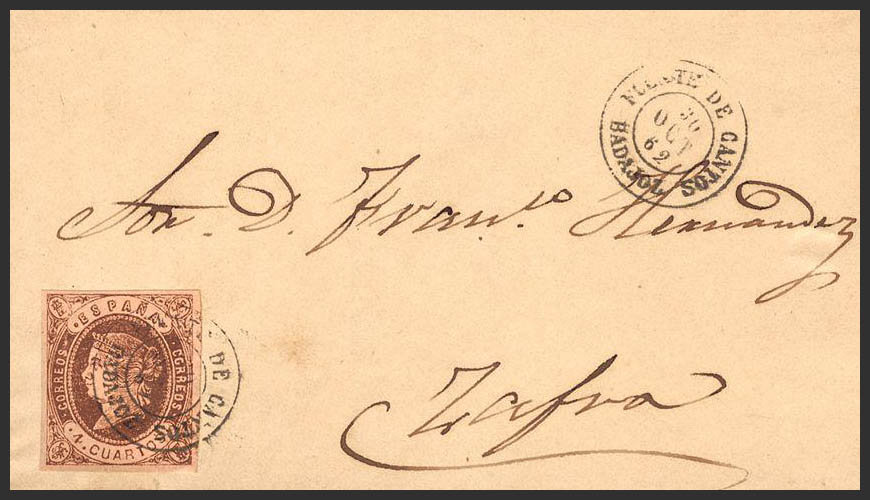 FUENTE DE CANTOS
BADAJOZ
30
OCT
62
Sor. D. Franco. Hernandez
Zafra
ESPAÑA
CORREOS CORREOS
4 CUARTOS
DE CA
BADAJOZ